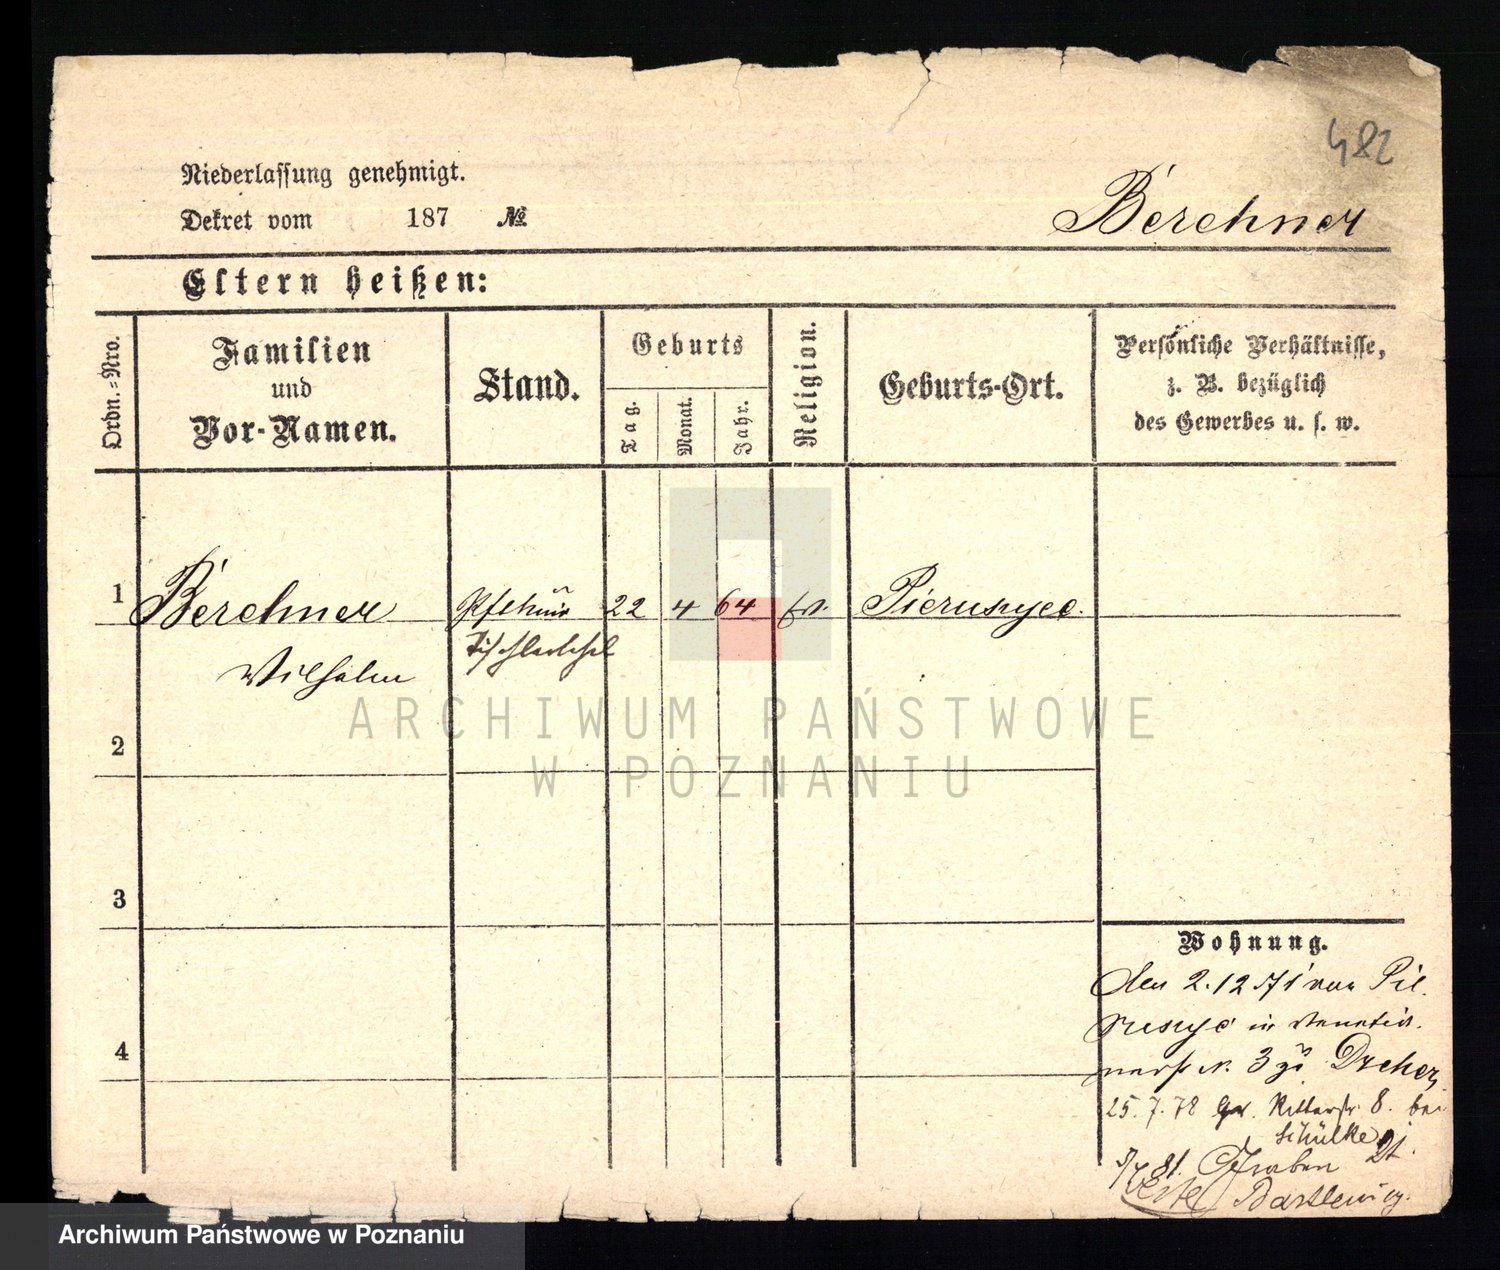 482
Niederlassung genehmigt.
Dekret vom 187 №
Berchner
Eltern heißen:
Ordn.=Nro.
Familien
und
Vor-Namen.
Stand.
Geburts
Tag.
Monat.
Jahr.
Religion.
Geburts-Ort.
Persönliche Verhältnisse,
z. B. bezüglich
des Gewerbes u. s. w.
1 Berchner 22 4 64 ev. Pierusyce.
Wilhelm
2
3
4
Wohnung.
den 2. 12 71 von Pie
rusyce in
N. 3 zu Drcher,
25. 7. 78 Gr. Ritterstr. 8. bei
Schülke
81. Graben 21.
Bartlewicz.
ARCHIWUM PAŃSTWOWE
W POZNANIU
Archiwum Państwowe w Poznaniu